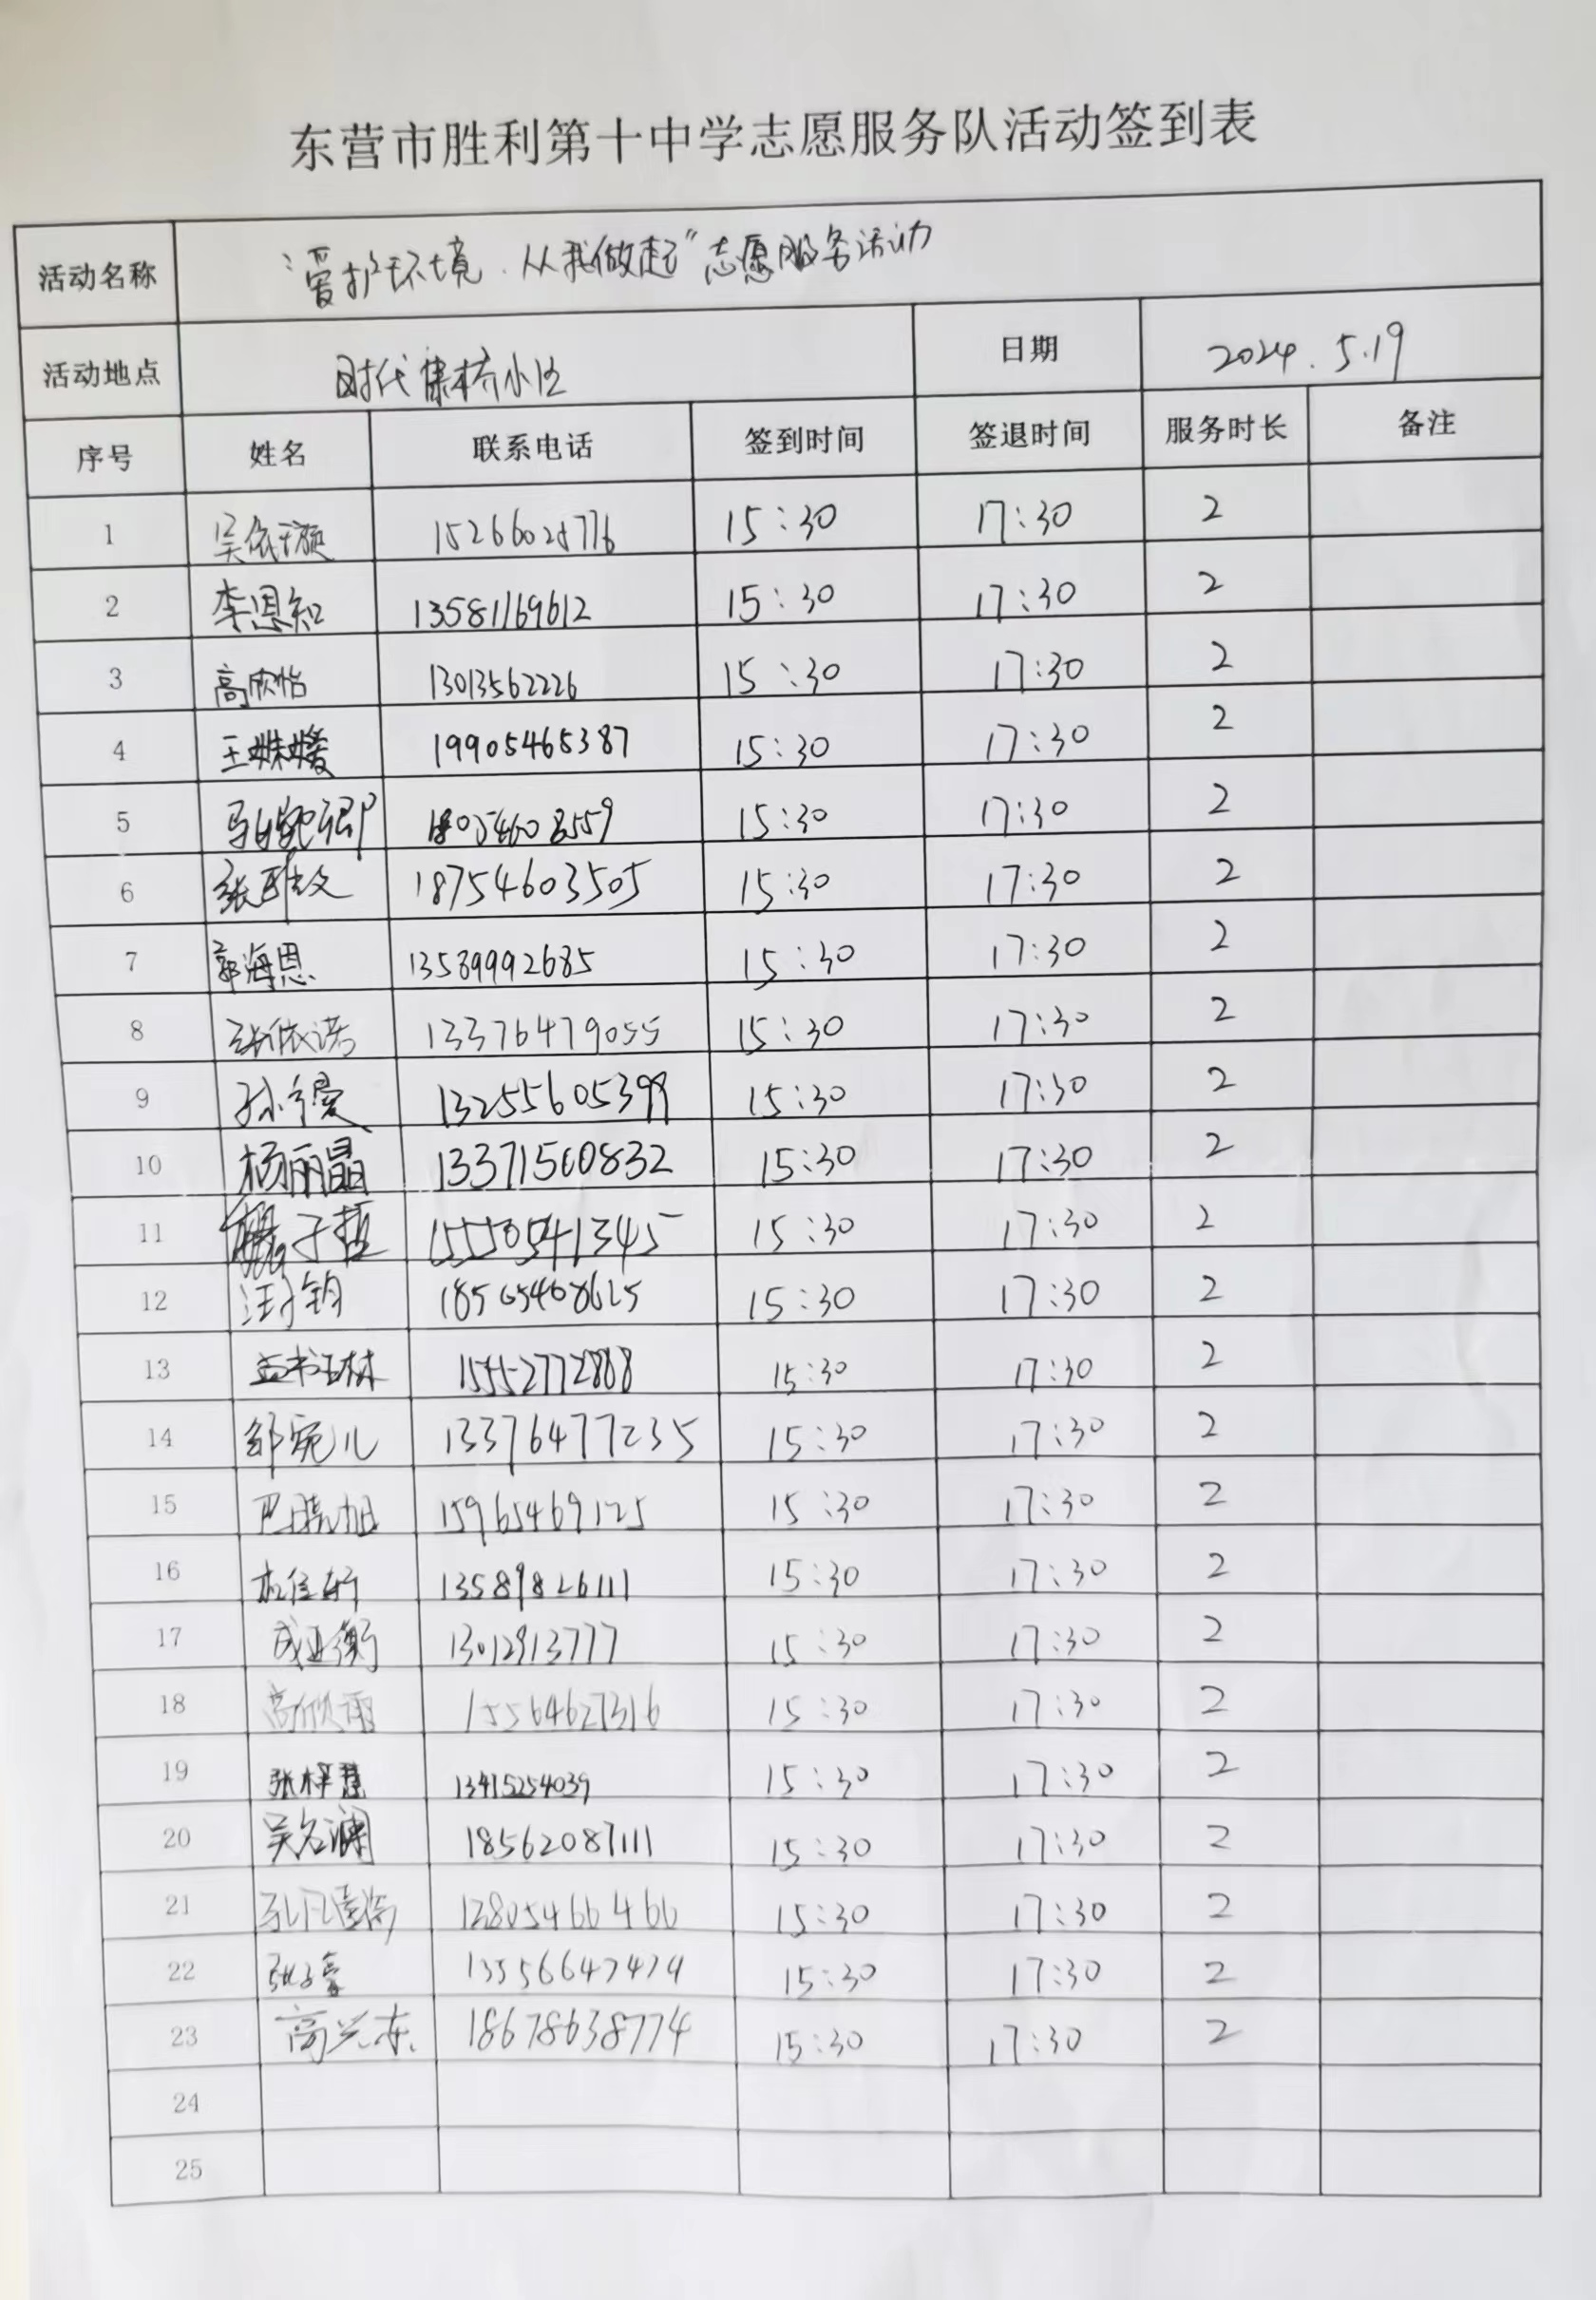 东营市胜利第十中学志愿服务队活动签到表
活动名称 "爱护环境.从我做起"志愿服务活动
活动地点 时代集桥小区 日期 2024.5.19
序号 姓名 联系电话 签到时间 签退时间 服务时长 备注
1 15:30 17:30 2
2 李恩知 13581169612 15:30 17:30 2
3 高欣怡 13013562226 15:30 17:30 2
4 王姝媛 19905465387 15:30 17:30 2
5 15:30 17:30 2
6 张雅文 18754603505 15:30 17:30 2
7 郭海恩 13589992685 15:30 17:30 2
8 张依诺 13376479055 15:30 17:30 2
9 13255605399 15:30 17:30 2
10 杨丽晶 13371500832 15:30 17:30 2
11 子哲 15550541345 15:30 17:30 2
12 18505468625 15:30 17:30 2
13 孟书林 15552772888 15:30 17:30 2
14 邹宛儿 13376477235 15:30 17:30 2
15 巴晓旭 15965469125 15:30 17:30 2
16 13589826111 15:30 17:30 2
17 成正衡 13012913777 15:30 17:30 2
18 高欣雨 15564627316 15:30 17:30 2
19 张梓慧 13415254039 15:30 17:30 2
20 吴名澜 18562087111 15:30 17:30 2
21 15:30 17:30 2
22 15:30 17:30 2
23 高兴东 18678638774 15:30 17:30 2
24
25